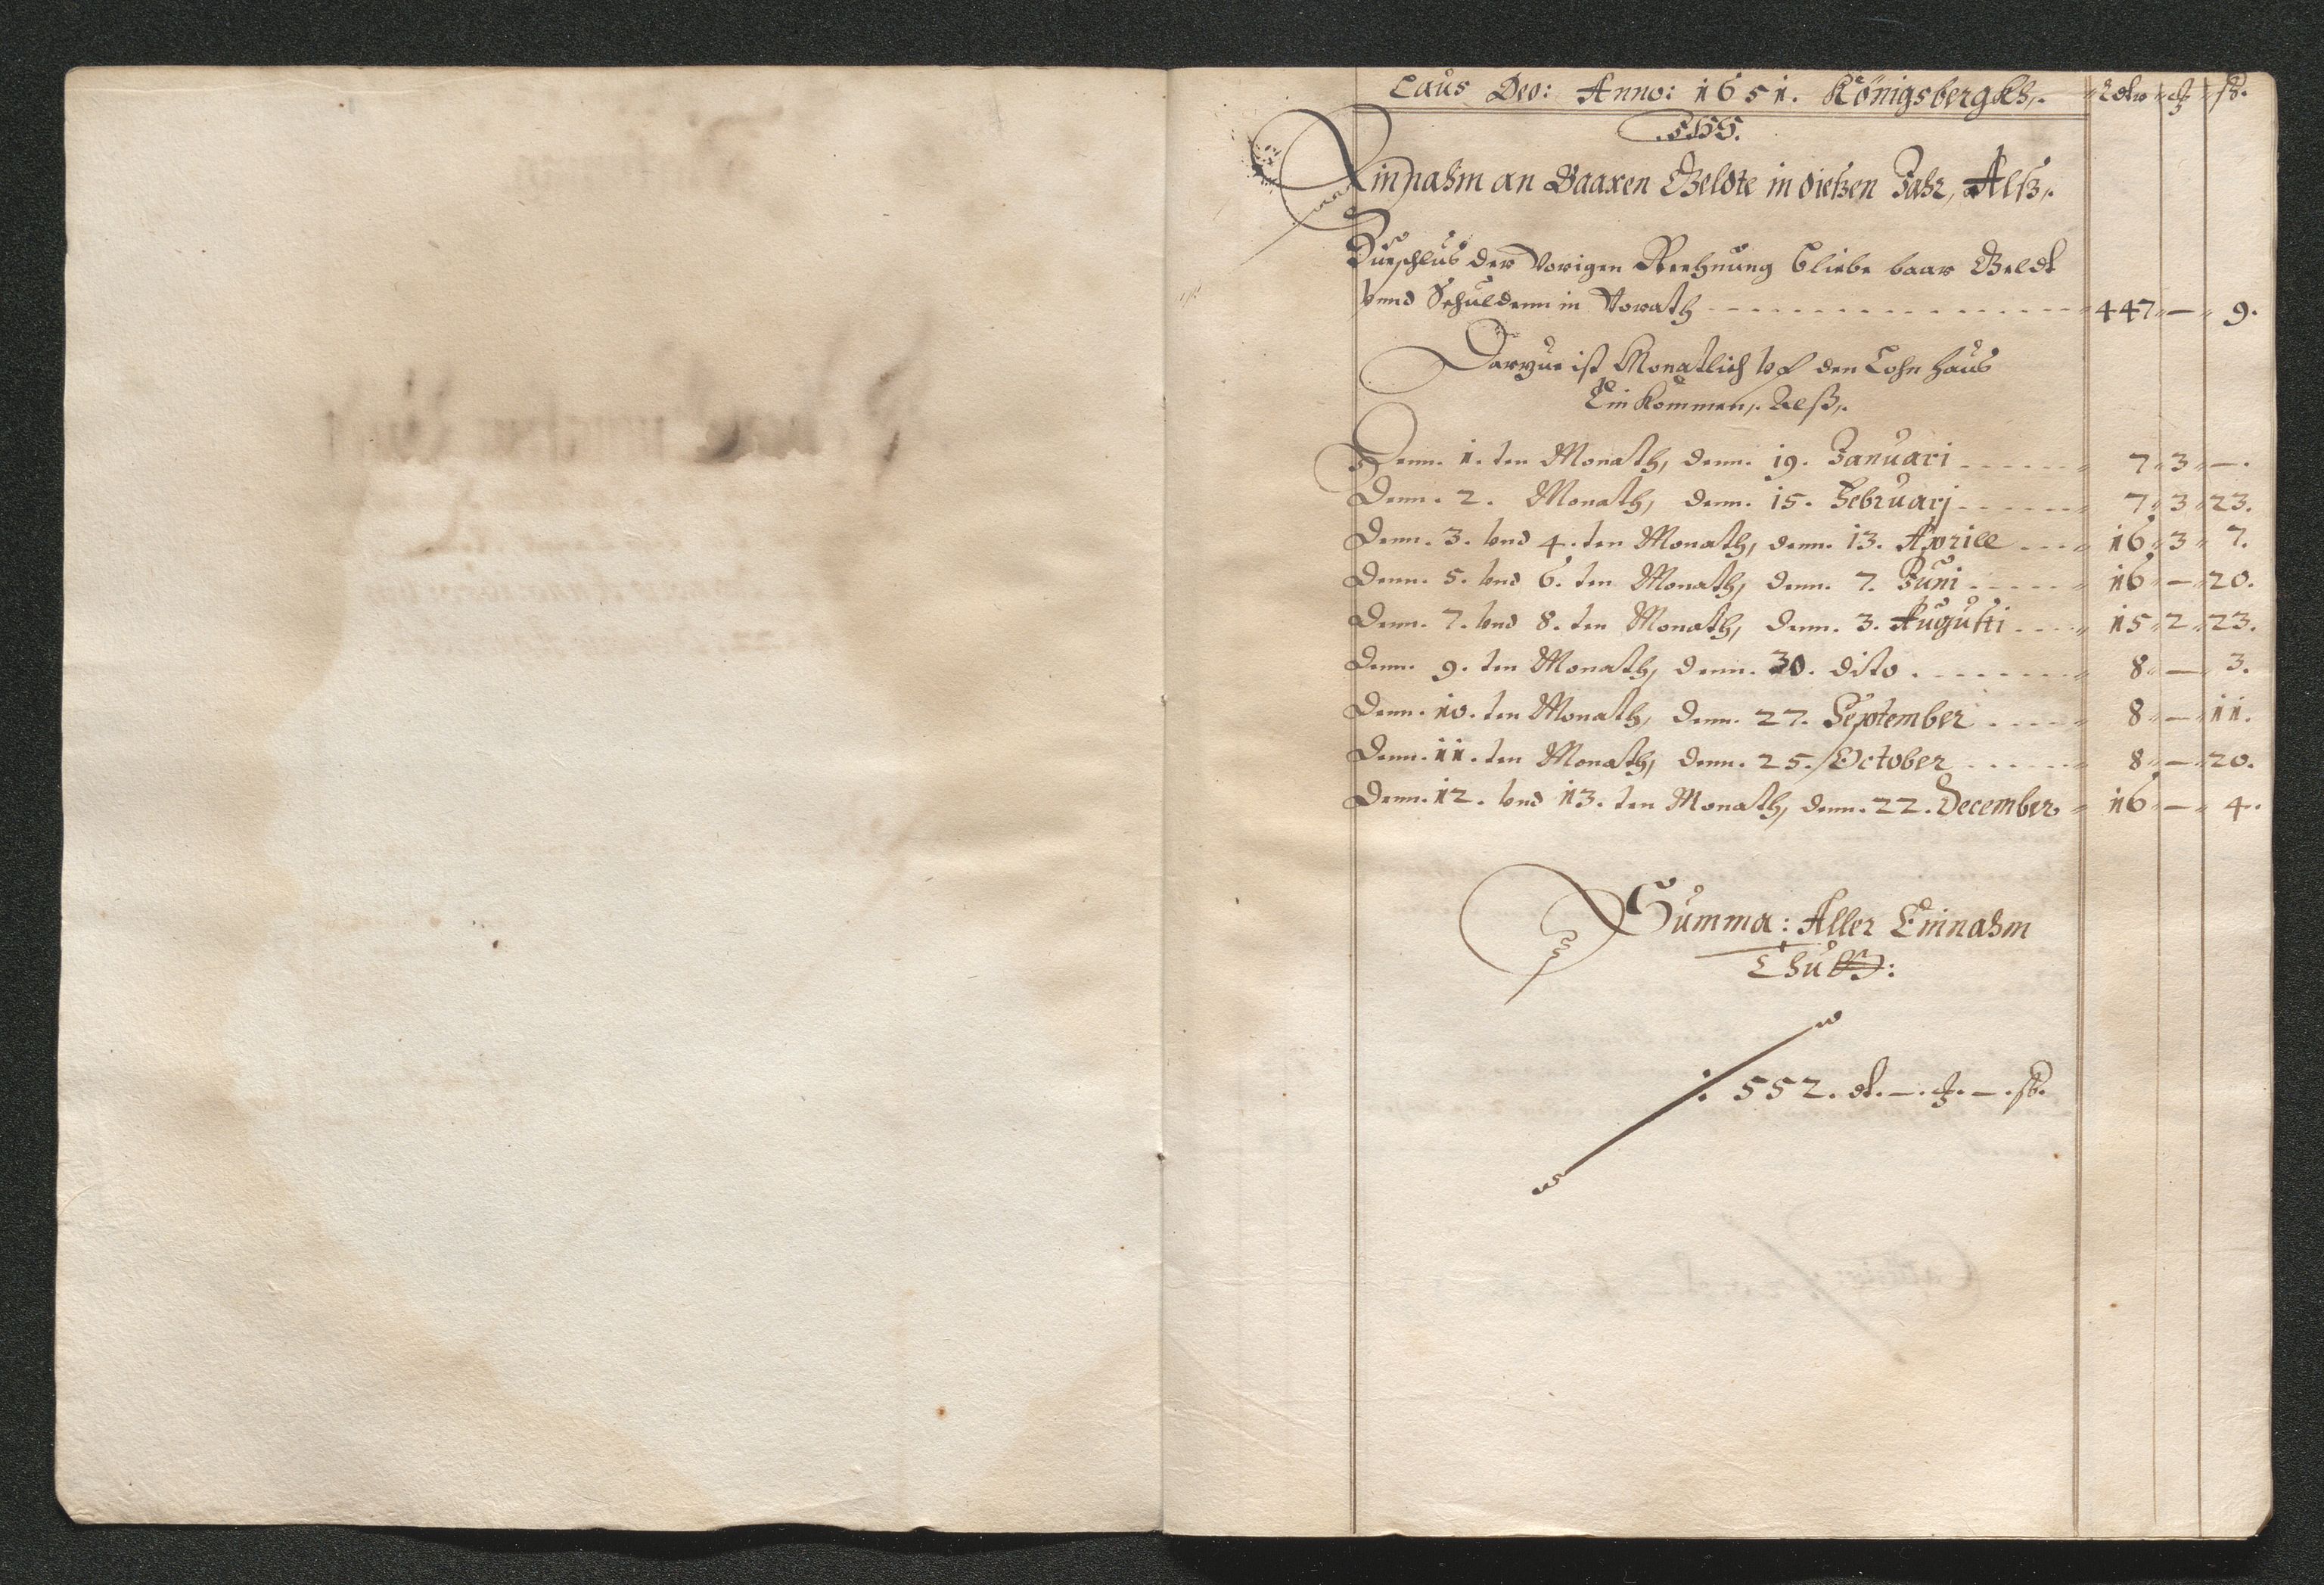 Laus Deo: Anno: 1651. Königsbergkh,. Rdlr ort ß.
Einnahm an Baaren Geldte in dießen Jahr, Alß,.
Zurschlus der Vorigen Rechnung bliebe baar Geldt
vnnd Schuldenn in Vorath - - - - - - 447 — 9.
ist Monatlich vf den Lohn haus
Ein kommen,. Alß,.
Denn. 1. ten Monath, denn. 19. Januari - - - - 7 3 —.
Denn. 2. Monath, denn. 15. Februarj - - - - 7 3 23.
Denn. 3. vnd 4. ten Monath, denn. 13. Aprill - - - 16 3 7.
Denn. 5. vnd 6. ten Monath, denn. 7. Juni - - - - 16 — 20.
Denn. 7. vnd 8. ten Monath, denn. 3. Augusti - - - 15 2 23.
Denn. 9. ten Monath, denn. 30. dito . - - - - 8 — 3.
Denn. 10. ten Monath, denn. 27. September - - - - 8 — 11.
Denn. 11. ten Monath, denn. 25. October - - - - 8 — 20.
Denn. 12. vnd 13. ten Monath, denn. 22. December 16 — 4.
Summa: Aller Einnahm
Thutt:
552. —. —. ß.